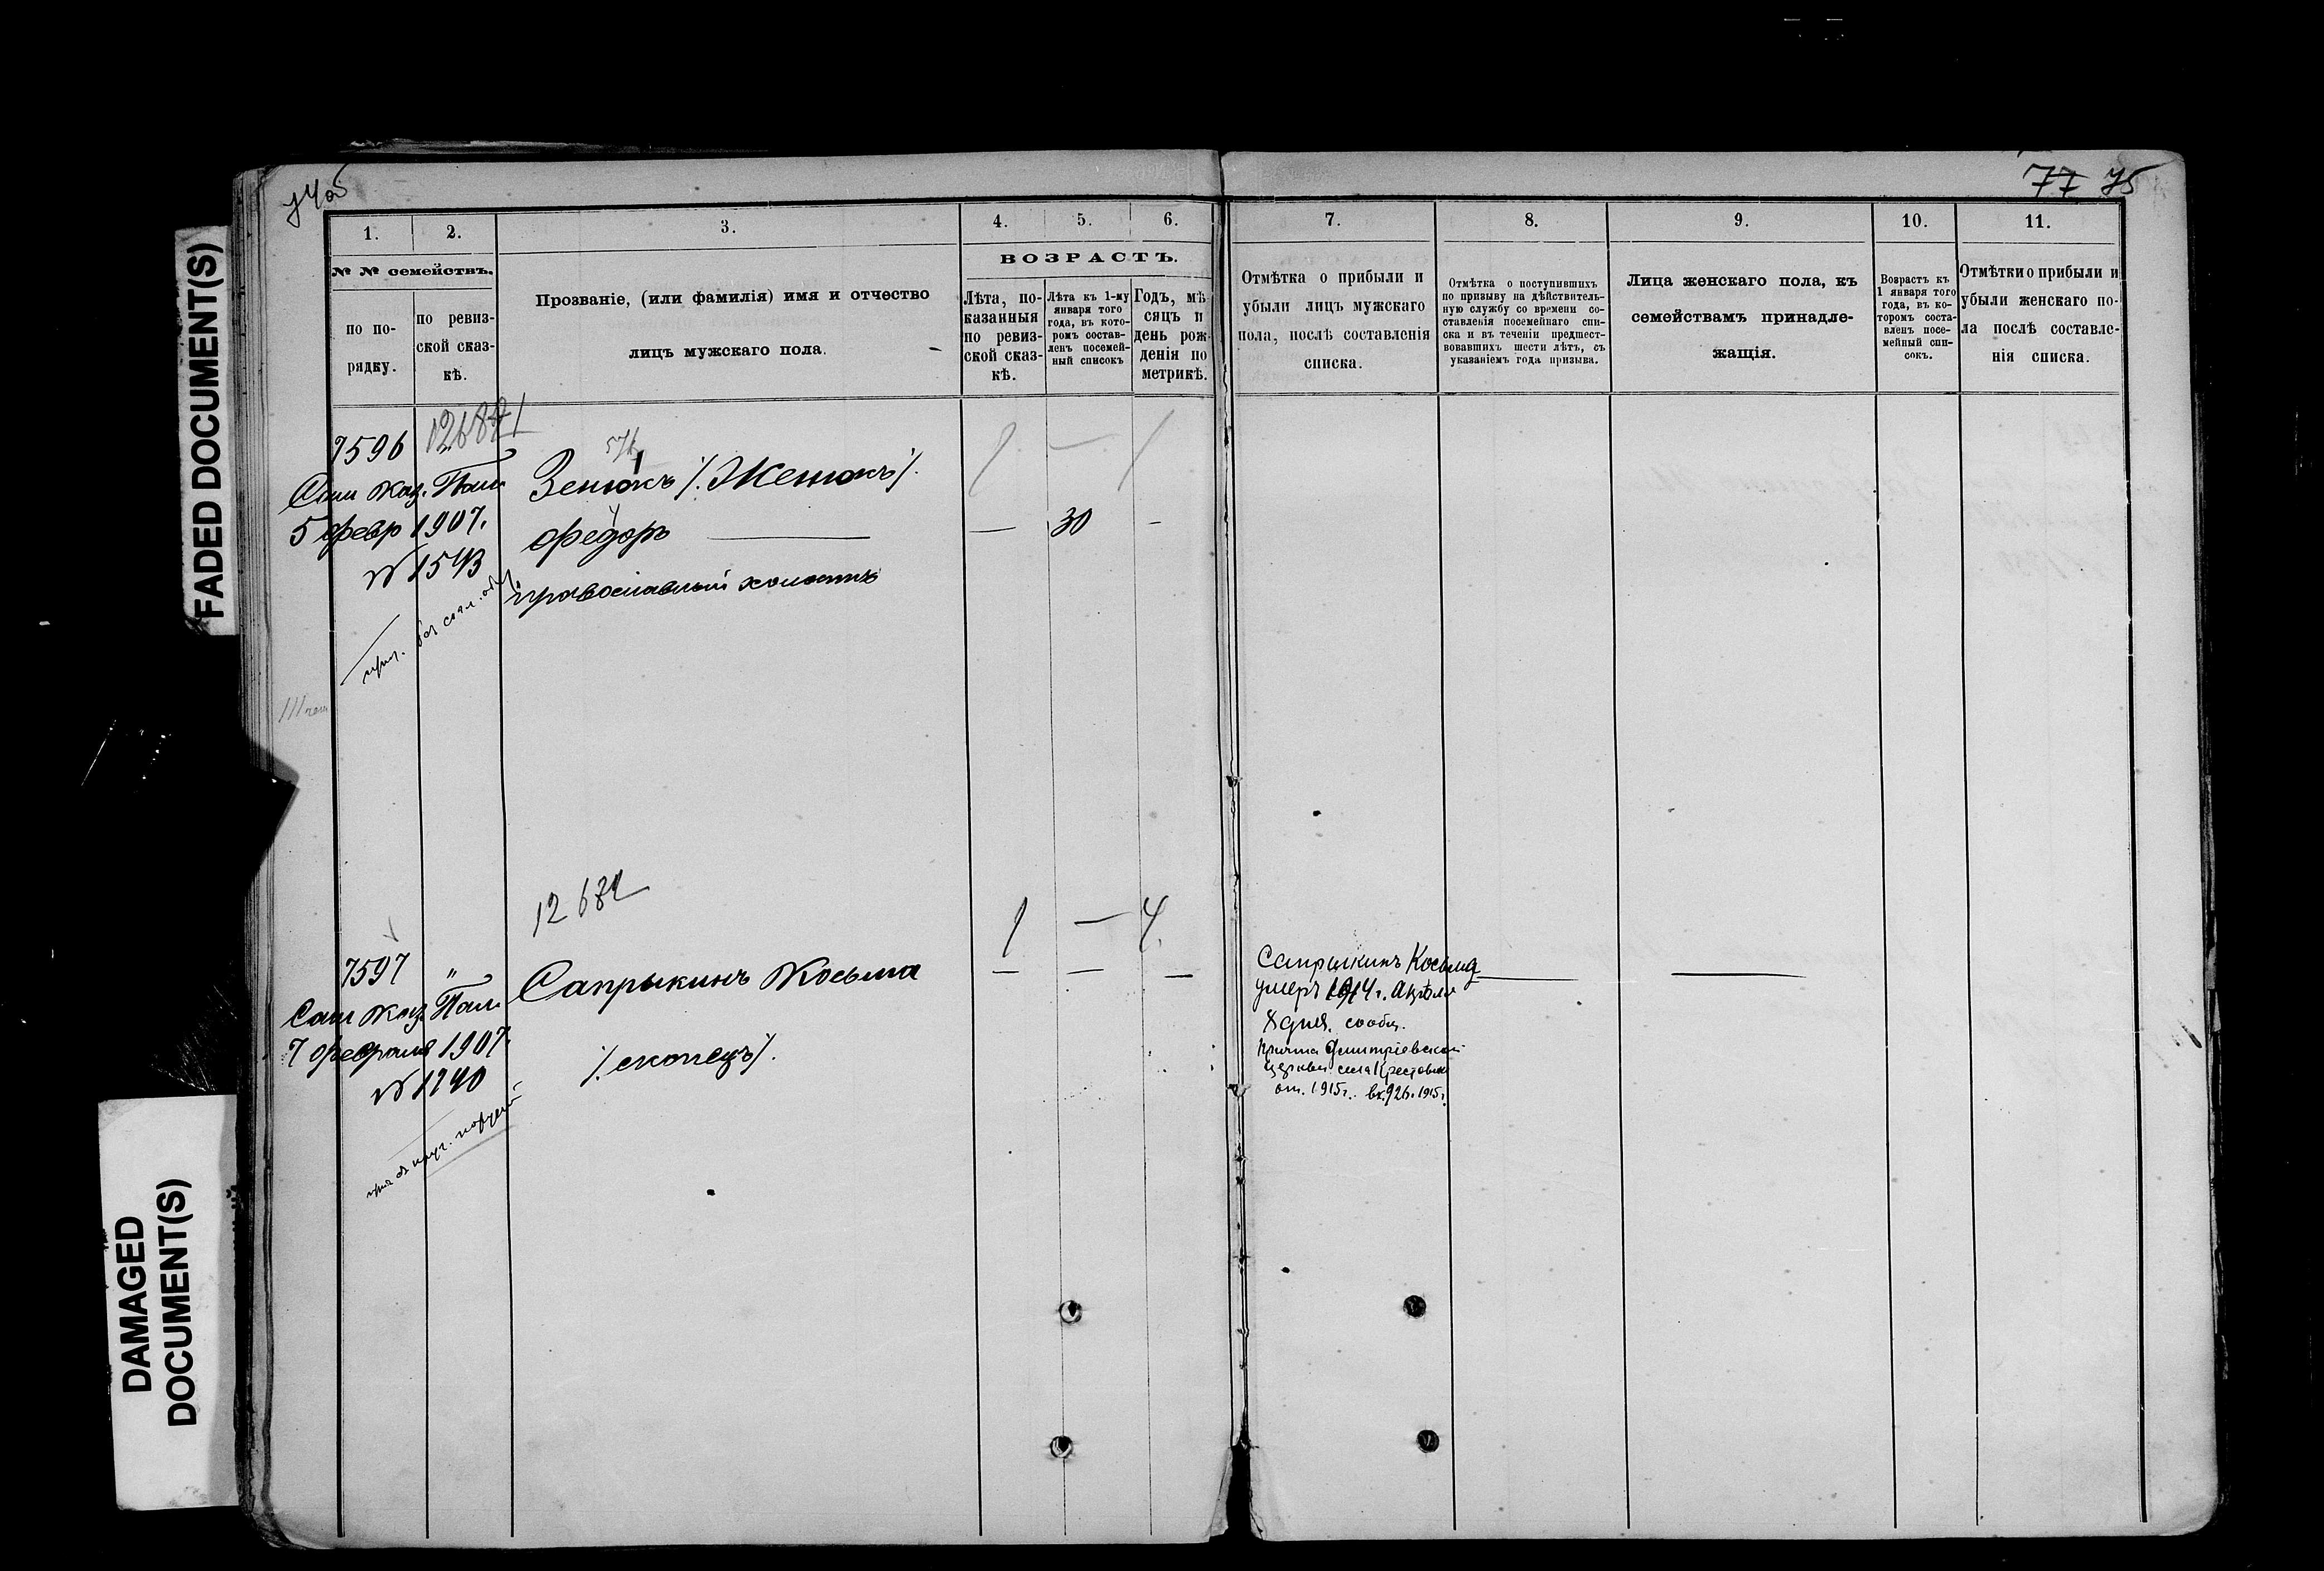 FADED DOCUMENT(S)
DAMAGED
DOCUMENT(S)
74об
77 75
1.
2.
3.
4.
5.
6.
7.
8.
9.
10.
11.
№ № семействъ.
по по-
рядку.
по ревиз-
ской сказ-
кѣ.
Прозваніе, (или фамилія) имя и отчество
лицъ мужскаго пола.
ВОЗРАСТЪ.
Лѣта, по-
казанныя
по ревиз-
ской сказ-
кѣ.
Лѣта къ 1-му
января того
года, въ кото-
ромъ состав-
ленъ посемей-
ный списокъ
Годъ, мѣ-
сяцъ и
день рож-
денія по
метрикѣ.
Отмѣтка о прибыли и
убыли лицъ мужскаго
пола, послѣ составленія
списка.
Отмѣтка о поступившихъ
по призыву на дѣйствитель-
ную службу со времени со-
ставленія посемейнаго спи-
ска и въ теченіи предшест-
вовавшихъ шести лѣтъ, съ
указаніемъ года призыва.
Лица женскаго пола, къ
семействамъ принадле-
жащія.
Возрастъ къ
1 января того
года, въ ко-
торомъ соста-
вленъ посе-
мейный спи-
сокъ.
Отмѣтки о прибыли и
убыли женскаго по-
ла послѣ составле-
нія списка.
7596
Каз. Пал.
5 февр 1907.
№ 1543
Зенюкъ /. Женюкъ /.
Федоръ — 30 -
православный холостъ
1 — 4
7597 "
Каз. Пал.
7 февраля 1907.
№ 1240
Сапрыкинъ Косьма — — —
/. скопецъ /.
Сапрыкинъ Косьма
умеръ 1914 г. Апрѣля
8 дня. сообщ.
Причта Дмитріевской
церкви села
от. 1915 г. вх. 926. 1915 г.